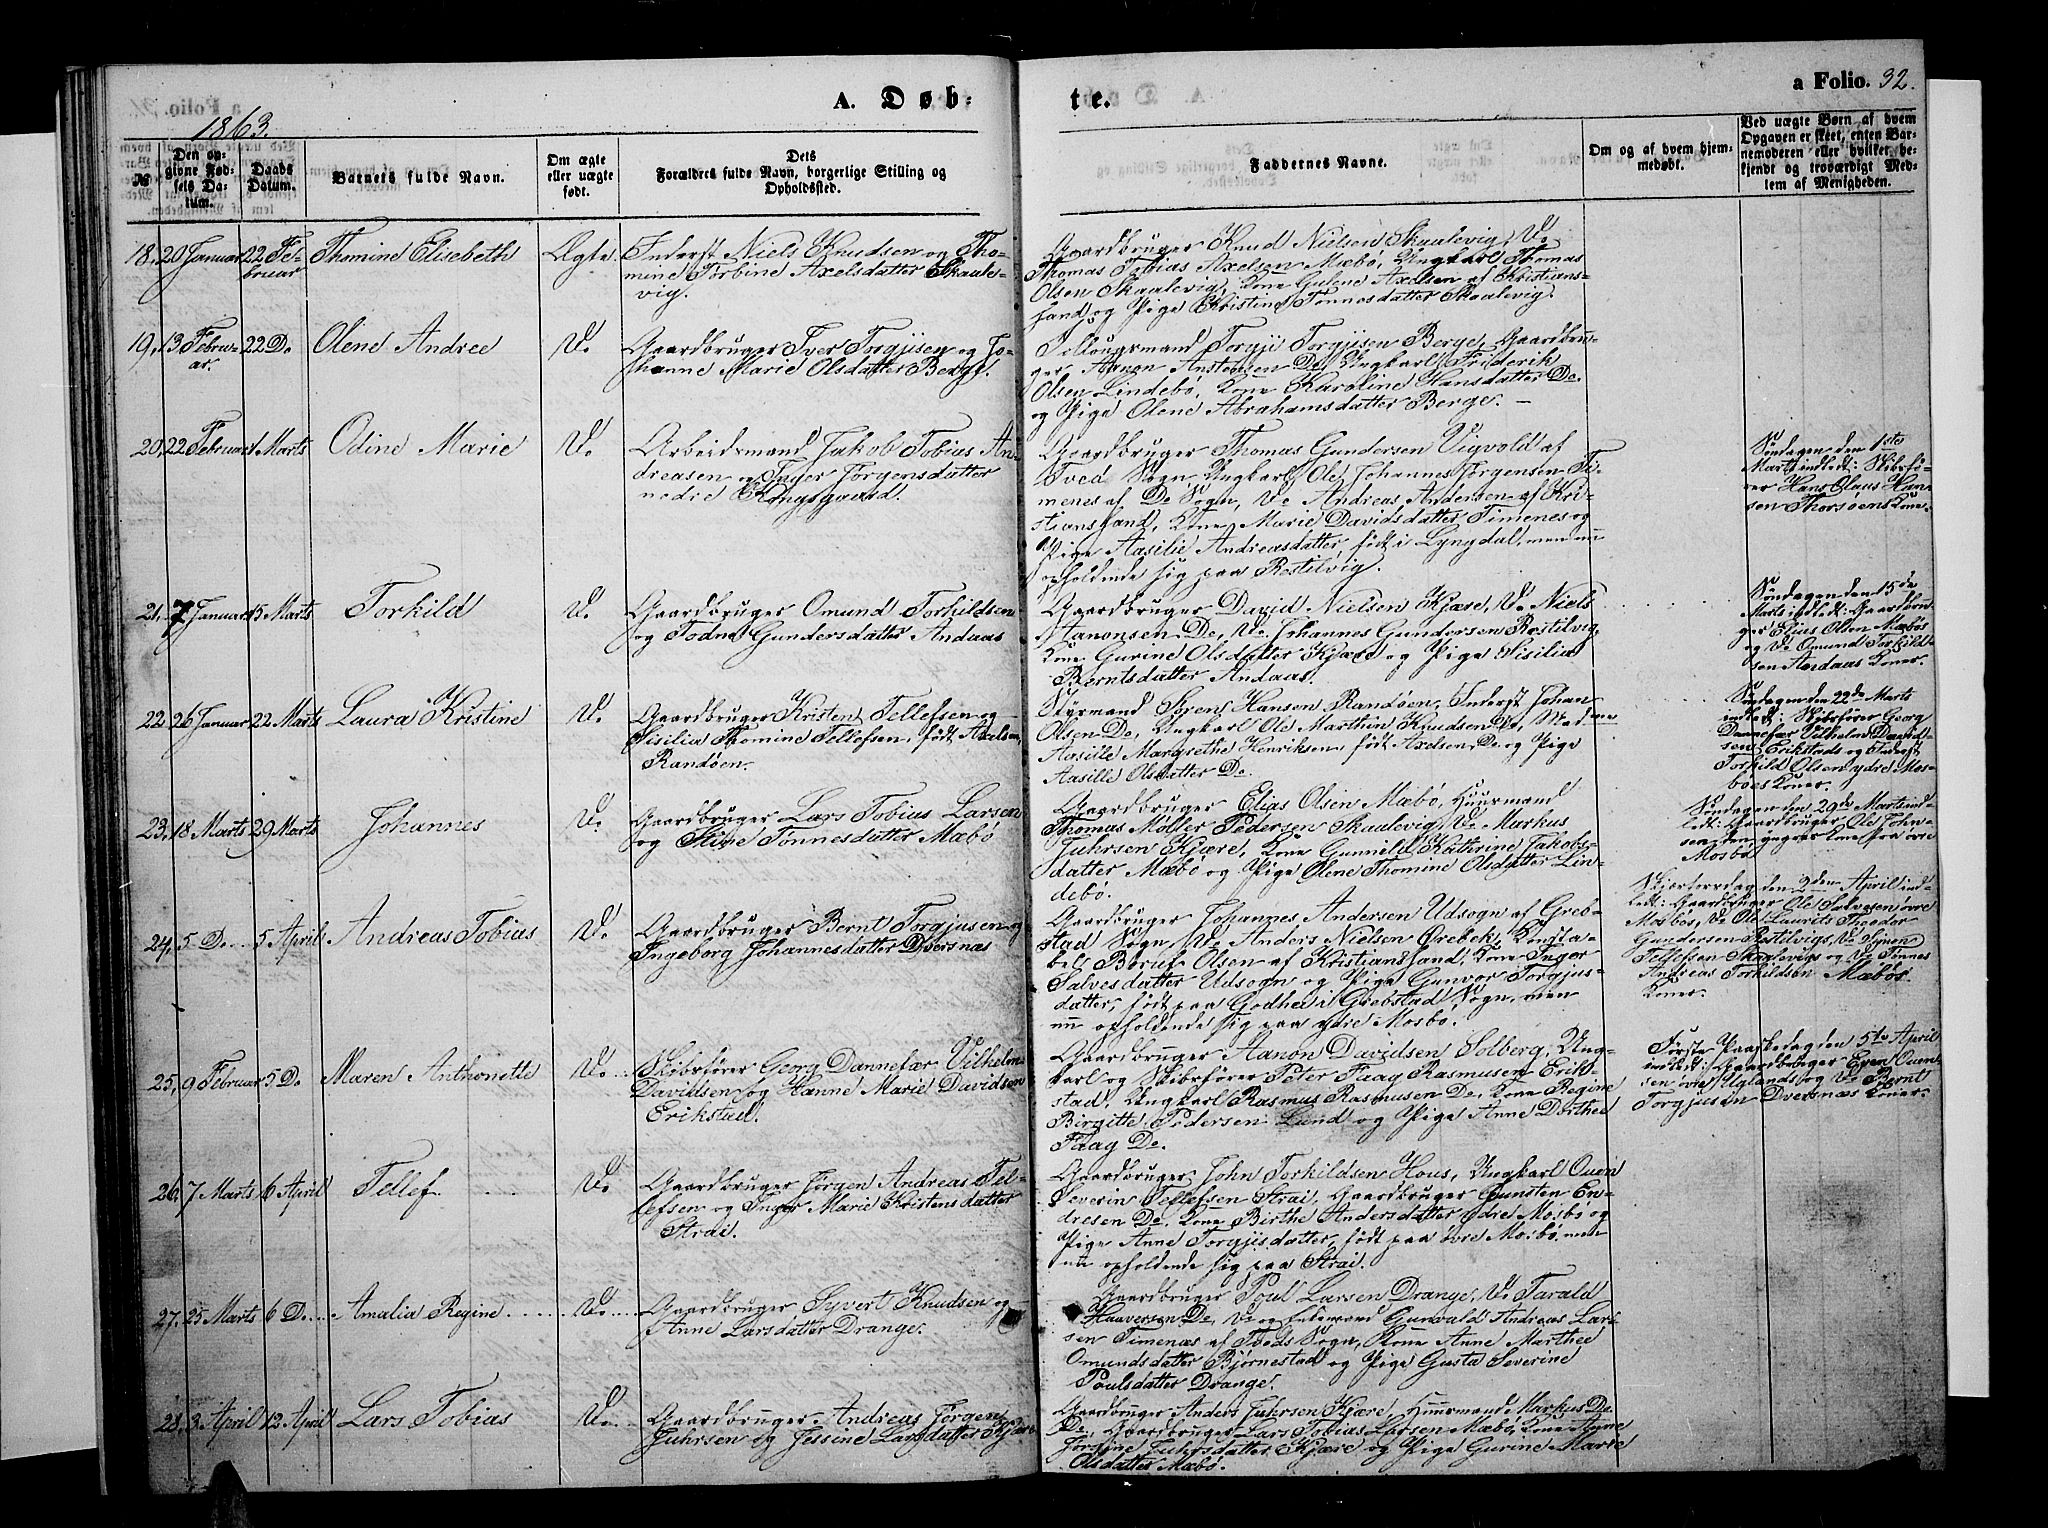 A. Døb-
te.
a Folio. 32.
1863.
№
Den op-
givne Fød-
sels Da-
tum.
Daabs
Datum.
Barnets fulde Navn.
Om ægte
eller uægte
født.
Dets
Forældres fulde Navn, borgerlige Stilling og
Opholdssted.
Faddernes Navne.
Om og af hvem hjem-
medøbt.
Ved uægte Børn af hvem
Opgaven er skeet, enten Bar-
nemoderen eller hvilket be-
kjendt og troværdigt Med-
lem af Menigheden.
18, 20 Januar 22 Fe-
bruar
Thomine Elisebeth
Ægte
Inderst Niels Knudsen og Tho-
mine Torbine Axelsdatter Skaale-
vig.
Gaardbruger Knud Nielsen Skaalevig, Do
Thomas Tobias Axelsen Mæbø, Ungkarl Thomas
Olsen Skaalevig, Kone Gulene Axelsen af Kristians-
sand og Pige Kristine Tønnesdatter Skaalevig.
19, 13 Febru-
ar. 22 Do
Olene Andree
Do
Gaardbruger Iver Torgjusen og Jo-
hanne Marie Olsdatter Berge.
Follougsmand Torgju Torgjusen Berge, Gaardbru-
ger Aanon Anstensen Do, Ungkarl Friderik
Olsen Lindebø, Kone Karoline Hansdatter Do
og Pige Olene Abrahamsdatter Berge. –
20, 22 Februar 1 Marts
Odine Marie
Do
Arbeidsmand Jakob Tobias An-
dreasen og Inger Jørgensdatter
nedre Kongsgaard.
Gaardbruger Thomas Gundersen Vigvold af
Tved Sogn, Ungkarl Ole Johannes Jørgensen Ti-
menes af Do Sogn, Do Andreas Andersen af Kri-
stianssand, Kone Marie Davidsdatter Timenes og
Pige Aasilie Andreasdatter, født i Lyngdal, men nu
opholdende sig paa Restilvig.
Søndagen den 1ste
Marts indledt: Skibsfø-
rer Hans Olaus Han-
sen Thorsøens Kone.
21, 7 Januar 15 Marts
Torkild
Do
Gaardbruger Omund Torkildsen
og Todne Gundersdatter Andaas
Gaardbruger David Nielsen Kjære, Do Niels
Aanonsen Do, Do Johannes Gundersen Restilvig,
Kone Gurine Olsdatter Kjære og Pige Sisilia
Berntsdatter Andaas.
Søndagen den 15de
Marts indledt: Gaardbru-
ger Elias Olsen Mæbøs
og Do Omund Torkild-
sen Andaas Koner.
22, 26 Januar 22 Marts
Laura Kristine
Do
Gaardbruger Kristen Tellefsen og
Sisilia Thomine Tellefsen, født Axelsen,
Randøen.
Styrmand Søren Hansen Randøen, Inderst Johan
Olsen Do, Ungkarl Ole Marthin Knudsen Do, Madme
Aasille Margrethe Henriksen, født Axelsen, Do og Pige
Aasille Olsdatter Do
Søndagen den 22de Marts
indledt: Skibsfører Georg
Dannefær Vilhelm David-
sen Erikstads og Inderst
Torkild Olsen ydre Mos-
bøes Koner.
23, 18 Marts 29 Marts
Johannes
Do
Gaardbruger Lars Tobias Larsen
og Stine Tønnesdatter Mæbø
Gaardbruger Elias Olsen Mæbø, Huusmand
Thomas Møller Pedersen Skaalevig, Do Markus
Juhrsen Kjære, Kone Gunnild Kathrine Jakobs-
datter Mæbø og Pige Olene Thomine Olsdatter Lin-
debø.
Søndagen den 29de Marts ind-
ledt: Gaardbruger Ole John-
sens Kone paa øvre
Mosbø
24, 5 Do 5 April
Andreas Tobias
Do
Gaardbruger Bernt Torgjusen og
Ingeborg Johannesdatter Dversnæs
Gaardbruger Johannes Andersen Udsogn af Greb-
stad Sogn, Do Anders Nielsen Ørebek, Konsta-
bel Børuf Olsen af Kristianssand, Kone Inger
Salvesdatter Udsogn og Pige Gunvor Torgjus-
datter, født paa Godhei i Grebstad Sogn, men
nu opholdende sig paa ydre Mosbø.
Skjærtorsdag den 2den April ind-
ledt: Gaardbruger Ole Salvesen øvre
Mosbøs, Do Ole Laurits Theoder
Gundersen Restilvigs, Do Signe
Tellefsen Skaalevigs og Do Tønnes
Andreas Torkildsen Mæbøs
Koner.
25, 9 Februar 5 Do
Maren Anthonette
Do
Skibsfører Georg Dannefær Vilhelm
Davidsen og Hanne Marie Davidsen
Erikstad.
Gaardbruger Aanon Davidsen Solberg, Ung-
karl og Skibsfører Peter Faag Rasmusen Erik-
stad, Ungkarl Rasmus Rasmusen Do, Kone Regine
Birgitte Pedersen Lund og Pige Anne Dorthea
Faag Do.
Første Paaskedag den 5te April
indledt: Gaardbruger Even Ouen-
sen øvre Uglands og Do Bernt
Torgjusen Dversnæs Koner.
26, 7 Marts 6 April
Tellef
Do
Gaardbruger Jørgen Andreas Tel-
lefsen og Inger Marie Kristensdatter
Strai.
Gaardbruger John Torkildsen Hous, Ungkarl Ouen
Severin Tellefsen Strai, Gaardbruger Gunsten En-
dresen Do, Kone Birthe Andersdatter ydre Mosbø og
Pige Anne Torgjusdatter, født paa øvre Mosbø, men
nu opholdende sig paa Strai.
27, 25 Marts 6 Do
Amalia Regine
Do
Gaardbruger Syvert Knudsen og
Anne Larsdatter Drange.
Gaardbruger Poul Larsen Drange, Do Tarald
Haaversen Do, Do og Enkemand Gunvald Andreas Lar-
sen Timenæs af Tveds Sogn, Kone Anne Marthea
Omundsdatter Bjørnestad og Pige Gusta Severine
Poulsdatter Drange.
28, 3 April 12 April
Lars Tobias
Do
Gaardbruger Andreas Jørgen
Juhrsen og Jessine Larsdatter Kjære
Gaardbruger Anders Juhrsen Kjære, Huusmand Markus Do
Do, Gaardbruger Lars Tobias Larsen Mæbø, Kone Anne
Jørgine Juhrsdatter Kjære og Pige Gurine Marie
Olsdatter Mæbø.